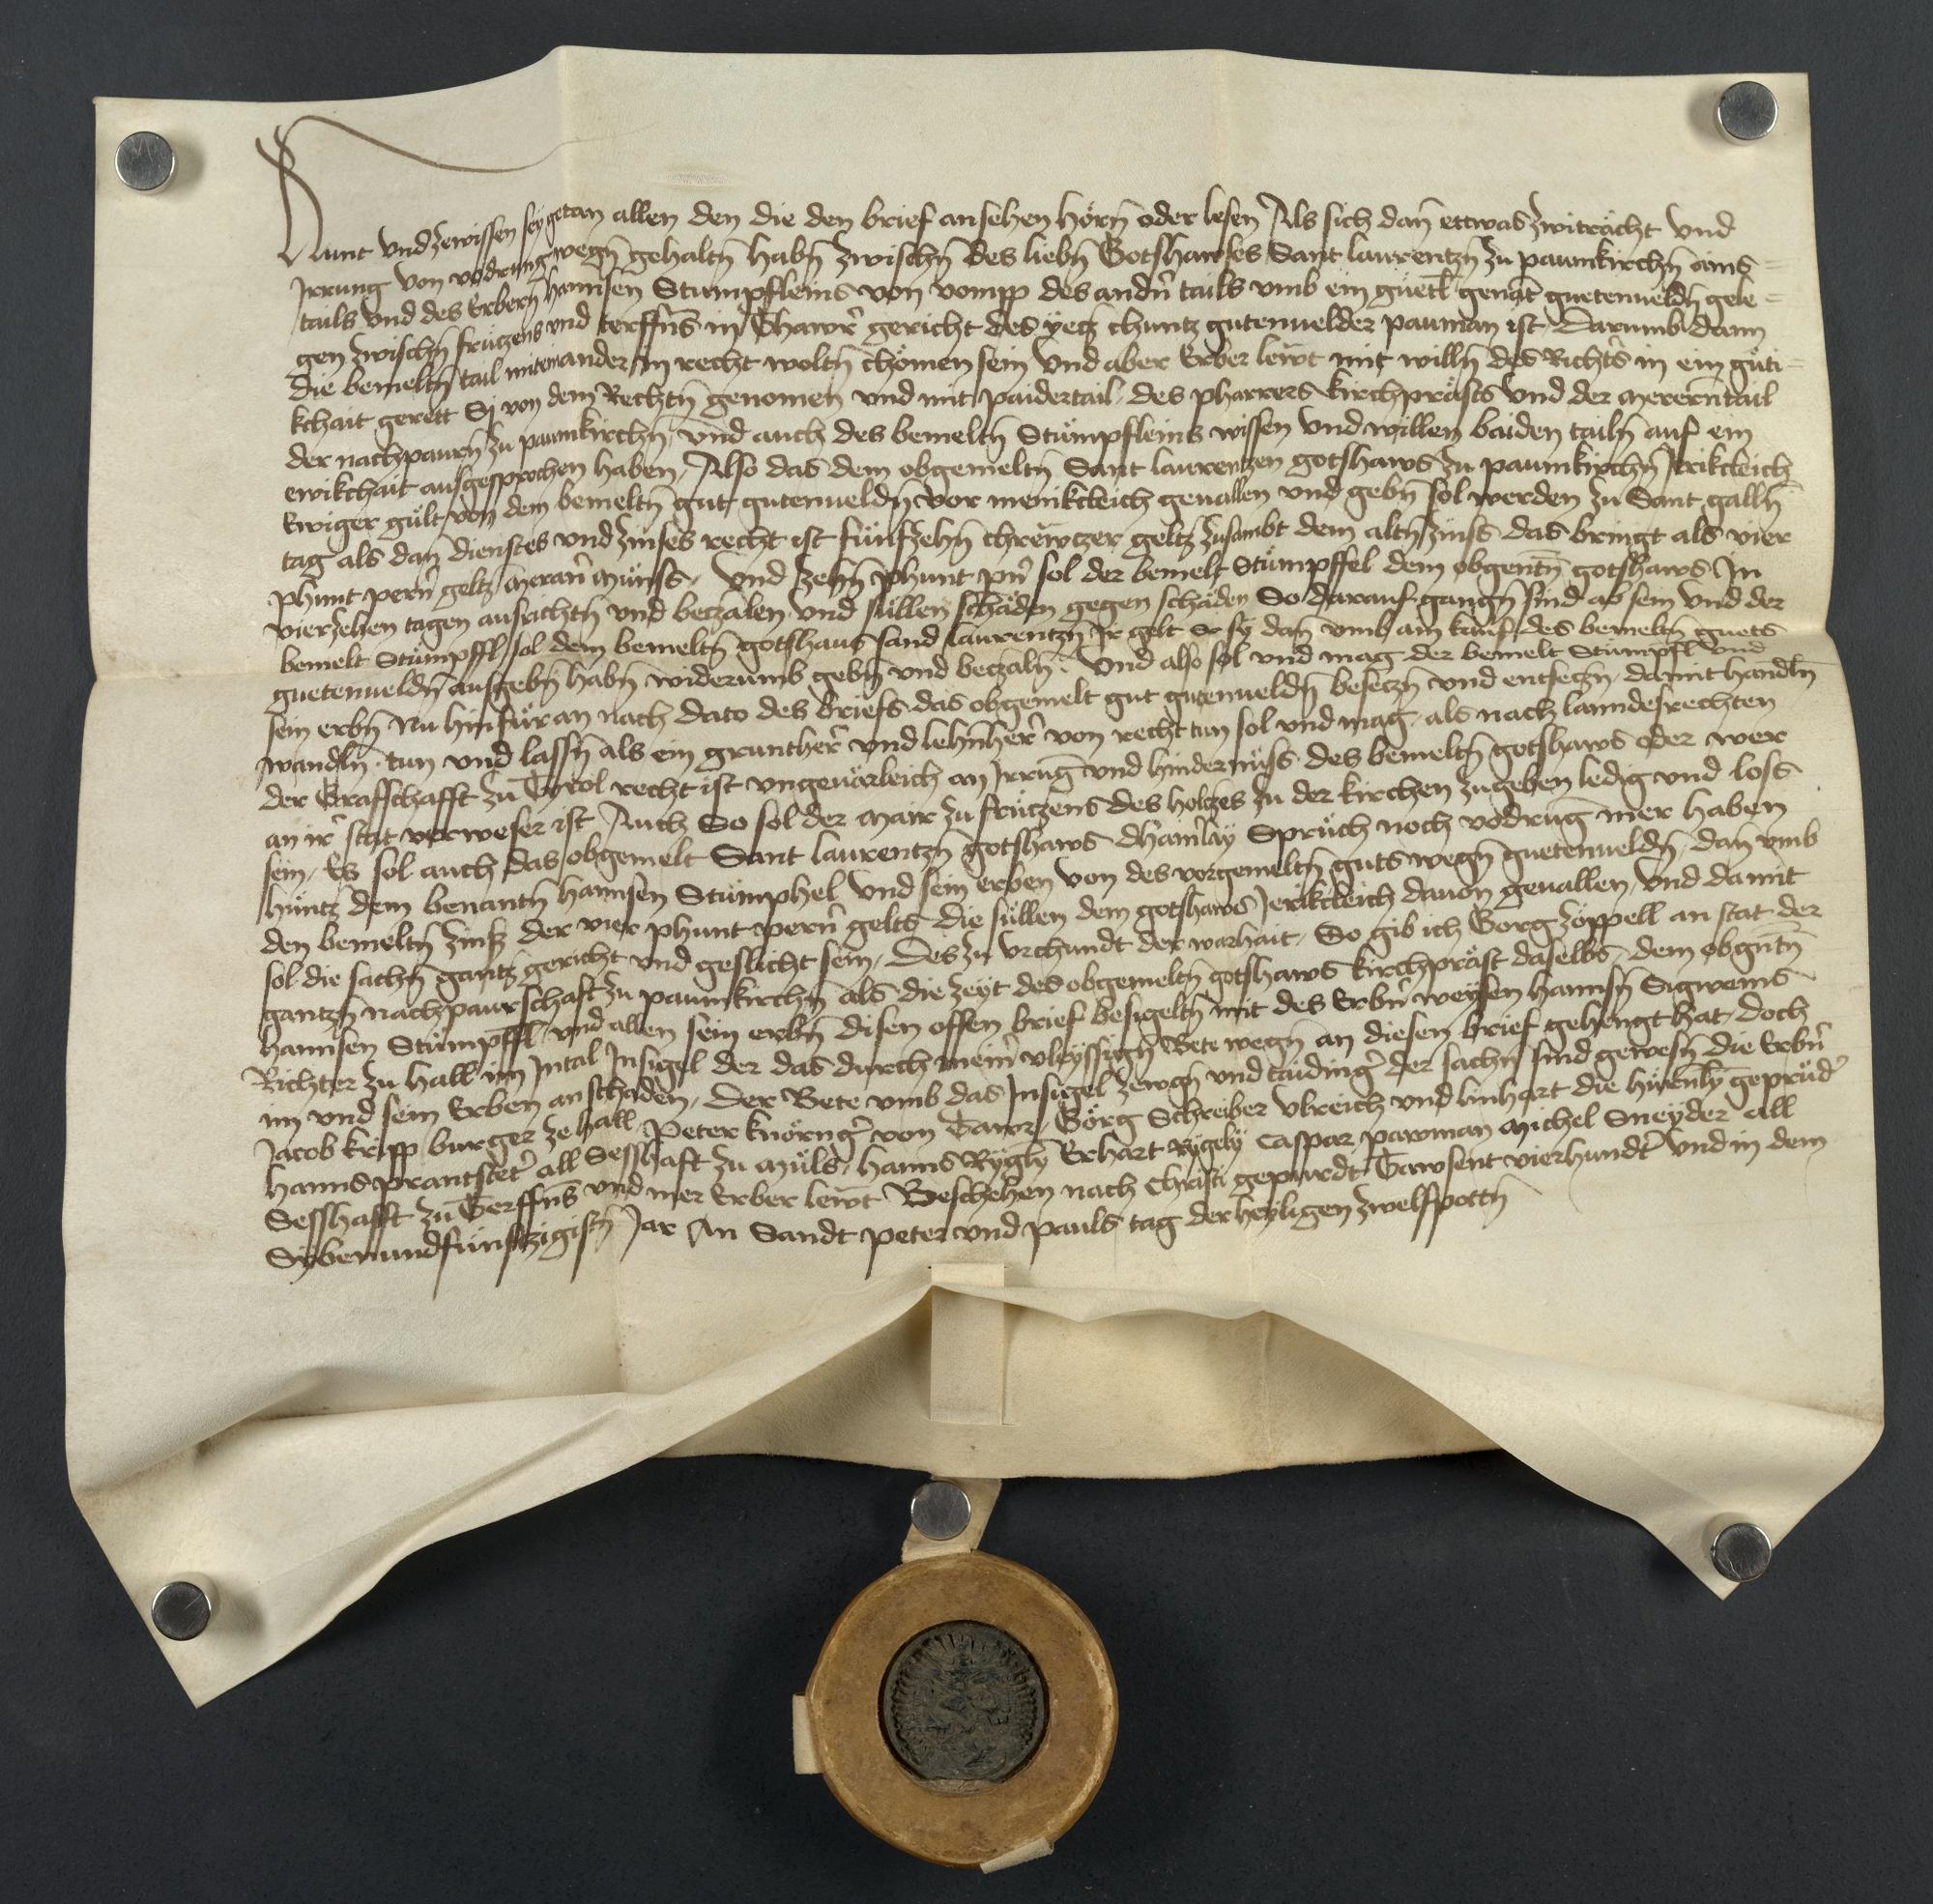 Kunt vnd zewissen sey getan allen den die den brief ansehen hörn̄ oder lesen Als sich dan̄ ettwas zwiträcht vnd
Jrrung von vodrung wegn̄ gehaltn̄ habn̄ zwischn̄ des liebn̄ Gotshawses Sant laurentzn̄ zu paumkirchn̄ ains
tails vnd des Erbern̄ hannsen Stumpfleins von vomp des andn̄ tails vmb ein guetl̄ genāt guetenueldn̄ gele
gen zwischn̄ frützens vnd terffn̄s in Thawr̄ gericht des yetz chuntz gutenuelder pauman ist Darumb dann
die bemeltn̄ tail miteinander in recht woltn̄ chömen sein vnd aber Erber lewt mit willn̄ des Richtr̄s in ein güti
kchait gerett Sj von dem Rechtn̄ genomen vnd mit paidertail des pharrers kirchprästs vnd der merern̄tail
der nachpaurn̄ zu paumkirchn̄ vnd auch des bemeltn̄ Stümpfleins wissen vnd willen baiden tailn̄ auf ein
ewikchait ausgesprochen haben, Also das dem obgemeltn̄ Sant laurentzen gotshaws zu paumkirchn̄ Jerikcleich
Ewiger gült von dem bemeltn̄ gut gutenueldn̄ vor menikcleich geuallen vnd gebn̄ sol werden zu Sant galln̄
tag als dan̄ dienstes vnd zinses recht ist fünfzehn̄ chrewtzer geltz zusambt dem altn̄ zinss das bringt als vier
phunt pern̄ geltz Meran̄ münss, Vnd zehn̄ phunt pn̄ sol der bemelt Stümpffel dem obgentn̄ gotshaws In
vierzehen tagen ausrichtn̄ vnd beczalen vnd süllen schäden gegen schäden So darauf gangn̄ sind ab sein vnd der
bemelt Stümpffl sol dem bemeltn̄ gotshaus sand laurentzn̄ Jr gelt So sy dan̄ vmb ain kauf des bemeltn̄ guets
guetenueldn̄ ausgebn̄ habn̄ widerumb gebn̄ vnd beczaln̄. Vnd also sol vnd mag der bemelt Stümpfl vnd
sein erbn̄ Nu hinfür an nach dato des briefs das obgemelt gut gutenueldn̄ beseczn̄ vnd entseczn̄, damit handln̄
wandln̄ tun vnd lassn̄ als ein gruntherr̄ vnd lehnherr̄ von recht tun sol vnd mag, als nach lanndesrechten
der Grafschafft zu Tyrol recht ist vngeuärleich an Jrruḡ vnd hindernüss des bemeltn̄ gotshaws oder wer
an ir̄ stat verweser ist Auch So sol der Mair zu frützens des holczes zu der kirchen zugeben ledig vnd loss
sein, Es sol auch das obgemelt Sant laurentzn̄ gotshaws dhainrlay Sprüch noch vodruḡ mer haben
hüntz dem benantn̄ hannsen Stümphel vnd sein erben von des vorgemeltn̄ guts wegn̄ guetenueldn̄, dan̄ vmb
den bemeltn̄ zinss der vier phunt pern̄ gelts die süllen dem gotshaws Jerikcleich dauon geuallen, vnd damit
sol die sachn̄ gantz gericht vnd geslicht sein, Des zu vrchundt der warhait, So gib ich Gorg zöppell an stat der
gantzn̄ nachpaurschaft zu paumkirchn̄ als die zeyt des obgemeltn̄ gotshaws kirchpräst daselbs, dem obgn̄tn̄
hannsen Stümpffl vnd allen sein erbn̄ disen offen brief besigeltn̄ mit des Erbn̄ weysen hannsn̄ Sigweins
Richter zu hall im Jntal Jnsigel der das durch meinr̄ vleyssign̄ Bete wegn̄ an diesen brief gehengt hat, doch
im vnd sein Erben an schaden, Der Bete vmb das Jnsigel zewgn̄ vnd taidingr̄ der sachn̄ sind gewesn̄ die Erbn̄
Jacob kripp burger ze hall, Peter knörngr̄ von Tawr, Görg Schreiber vlreich vnd linhart die hürnly geprüdr̄
hanns prantstetr̄ all Sesshaft zu Müls, hanns Rygly Erhart Rygely Caspar pawman Michel Sneyder all
Sesshafft zu Terffn̄s vnd mer Erber lewt Beschehen nach Christi gepurdt Tawsent vierhundt̄ vnd in dem
Sybenundfünftzigistn̄ Jar An Sandt peter vnd pauls tag der heyligen zwelfpottn̄